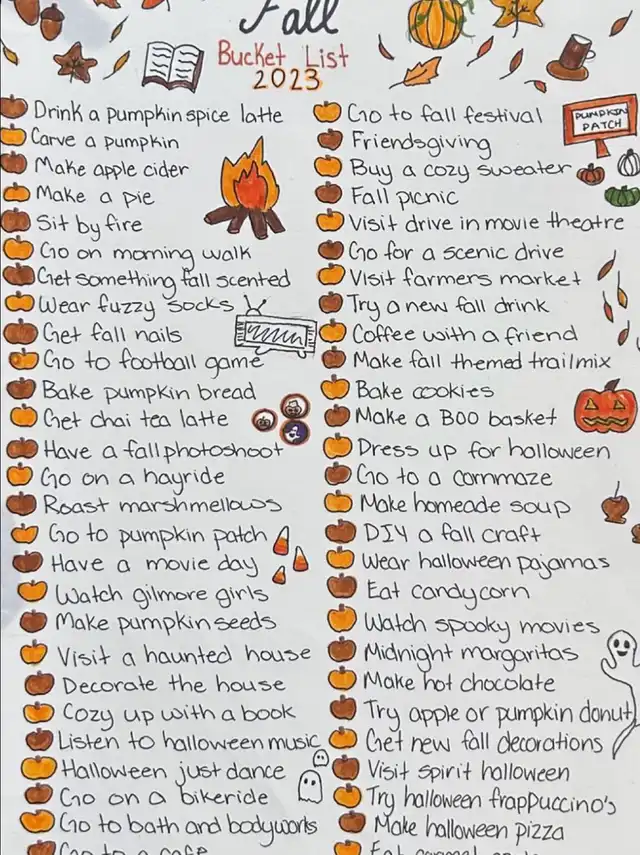 Fall
Bucket List
2023
Drink a pumpkin spice latte
Carve a pumpkin
Make apple cider
Make a pie
Sit by fire
Go on morning walk
Get something fall scented
Wear fuzzy socks
Get fall nails
Go to football game
Bake pumpkin bread
Get chai tea latte
Have a fall photoshoot
Go on a hayride
Roast marshmellows
Go to pumpkin patch
Have a movie day
Watch gilmore girls
Make pumpkin seeds
Visit a haunted house
Decorate the house
Cozy up with a book
Listen to halloween music
Halloween just dance
Go on a bikeride
Go to bath and bodyworks
Go to a cafe
Go to fall festival
PUMPKIN
PATCH
Friendsgiving
Buy a cozy sweater
Fall picnic
Visit drive in movie theatre
Go for a scenic drive
Visit farmers market
Try a new fall drink
Coffee with a friend
Make fall themed trailmix
Bake cookies
Make a BOO basket
Dress up for halloween
Go to a cornmaze
Make homeade soup
DIY a fall craft
Wear halloween pajamas
Eat candycorn
Watch spooky movies
Midnight margaritas
Make hot chocolate
Try apple or pumpkin donut
Get new fall decorations
Visit spirit halloween
Try halloween frappuccino's
Make halloween pizza
Eat